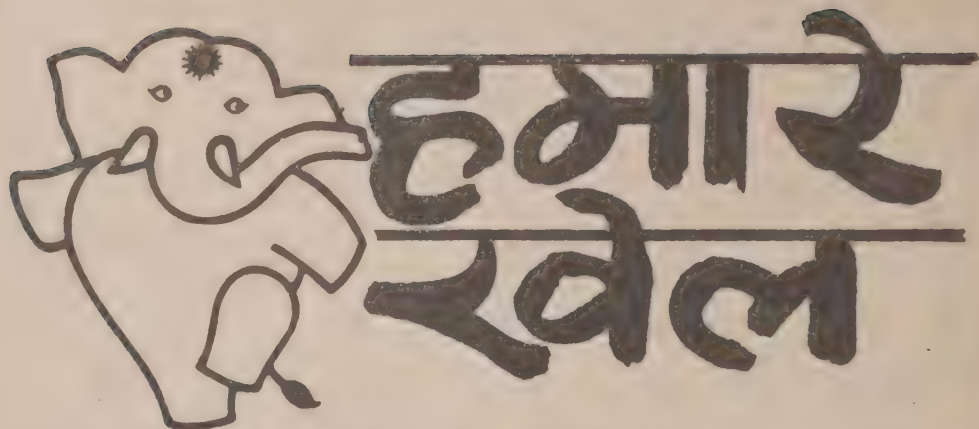 हमारे
खेल